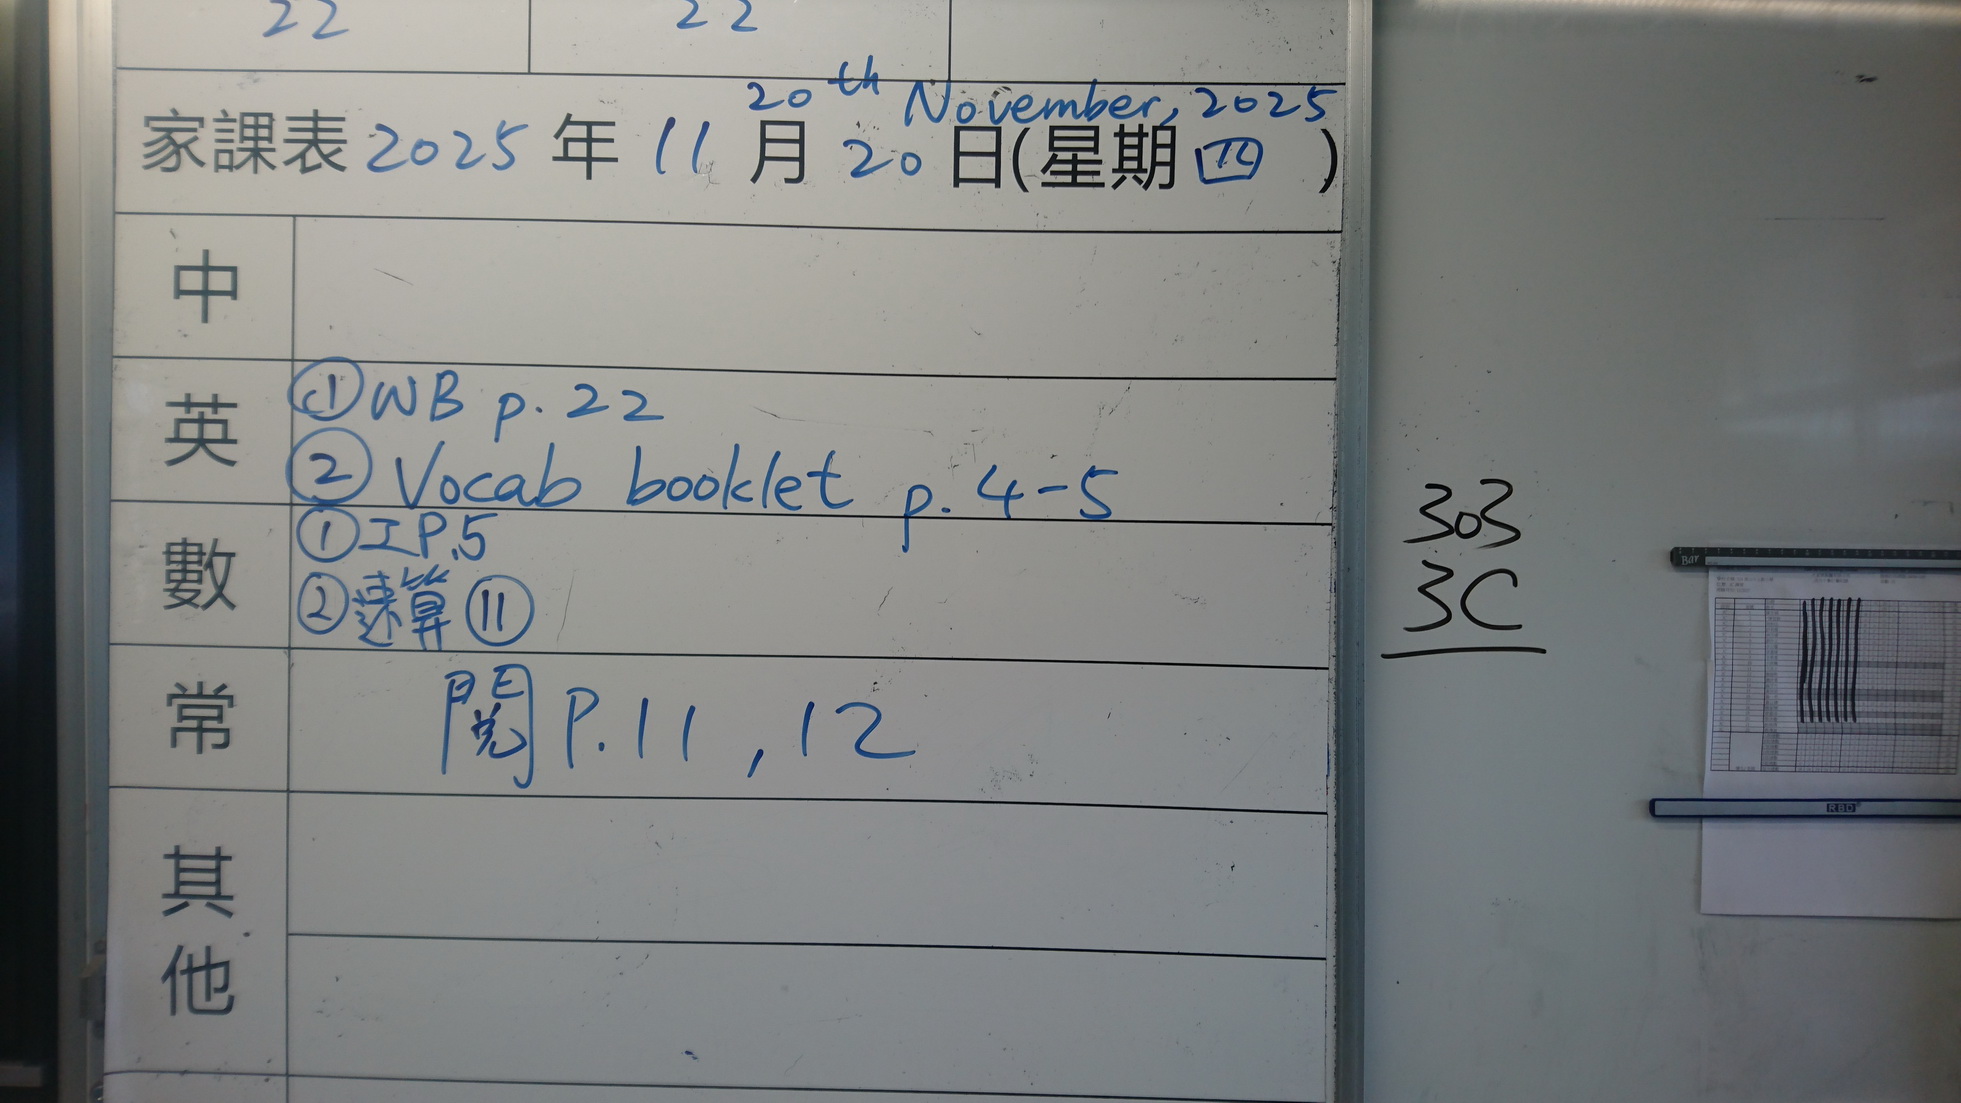 22 22
20th November, 2025
家課表 2025 年 11 月 20 日(星期四)
中
英 ① WB p. 22
② Vocab booklet p. 4-5
數 ① 工 P.5
② 速算 ⑪
常 閱 P. 11, 12
其他
303
3C
Bar
RBD